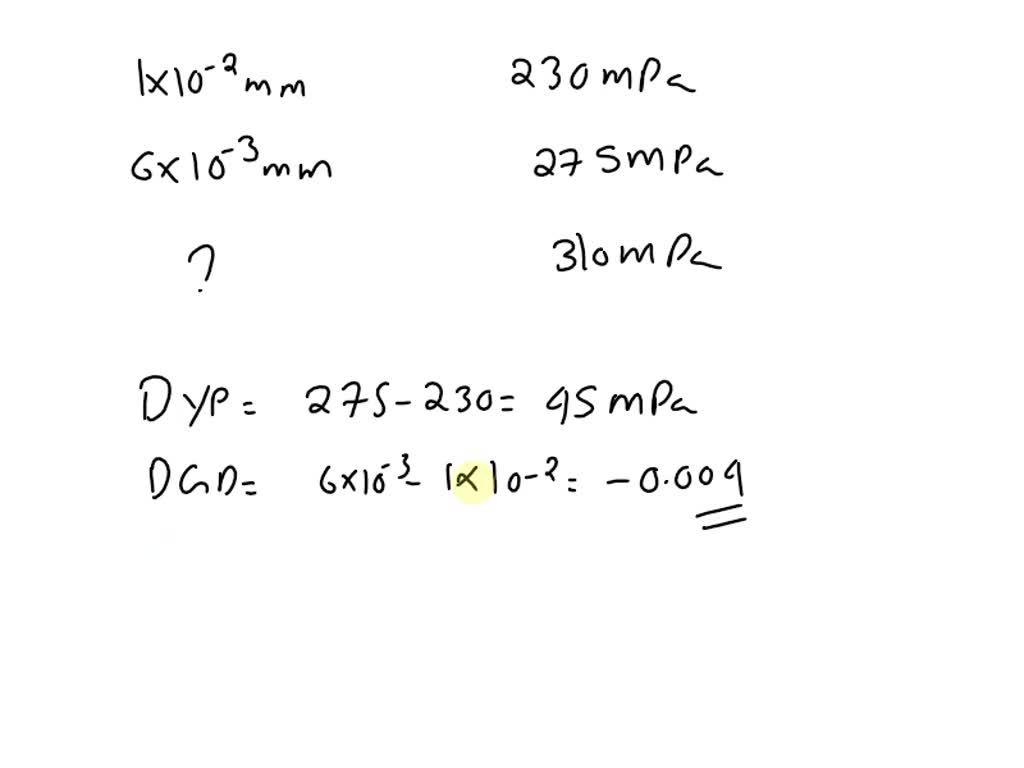 1x10⁻² mm 230 mPa
6x10⁻³ mm 275 mPa
? 310 mPa
DYP = 275 - 230 = 45 mPa
DGD = 6x10⁻³ - 1x10⁻² = -0.004